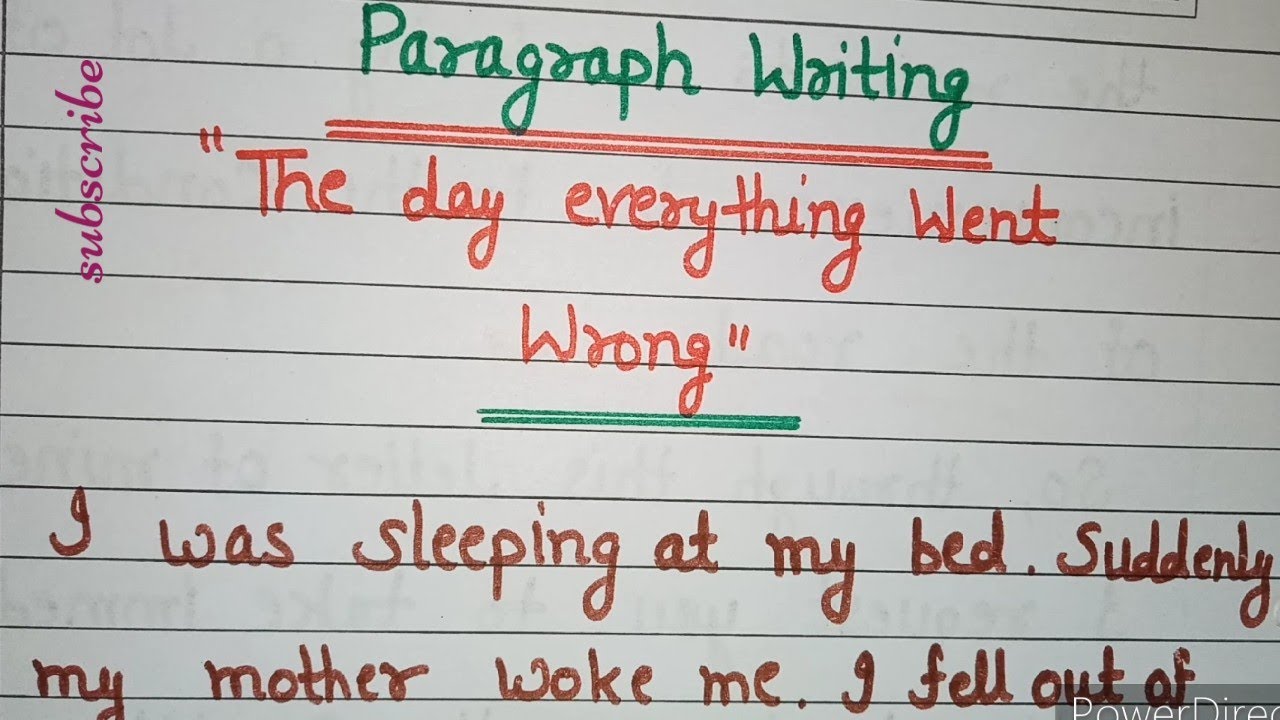 Paragraph Writing
subscribe
"The day everything Went
Wrong"
I was sleeping at my bed. Suddenly
my mother woke me. I fell out of
PowerDirec